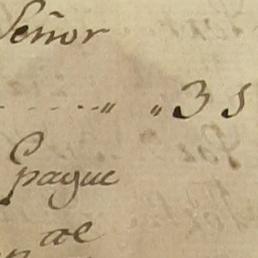 Señor
" " 3 S
Epague
ae